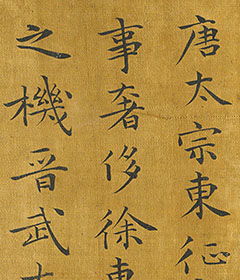 唐太宗東征
事奢侈徐惠
之機晋武